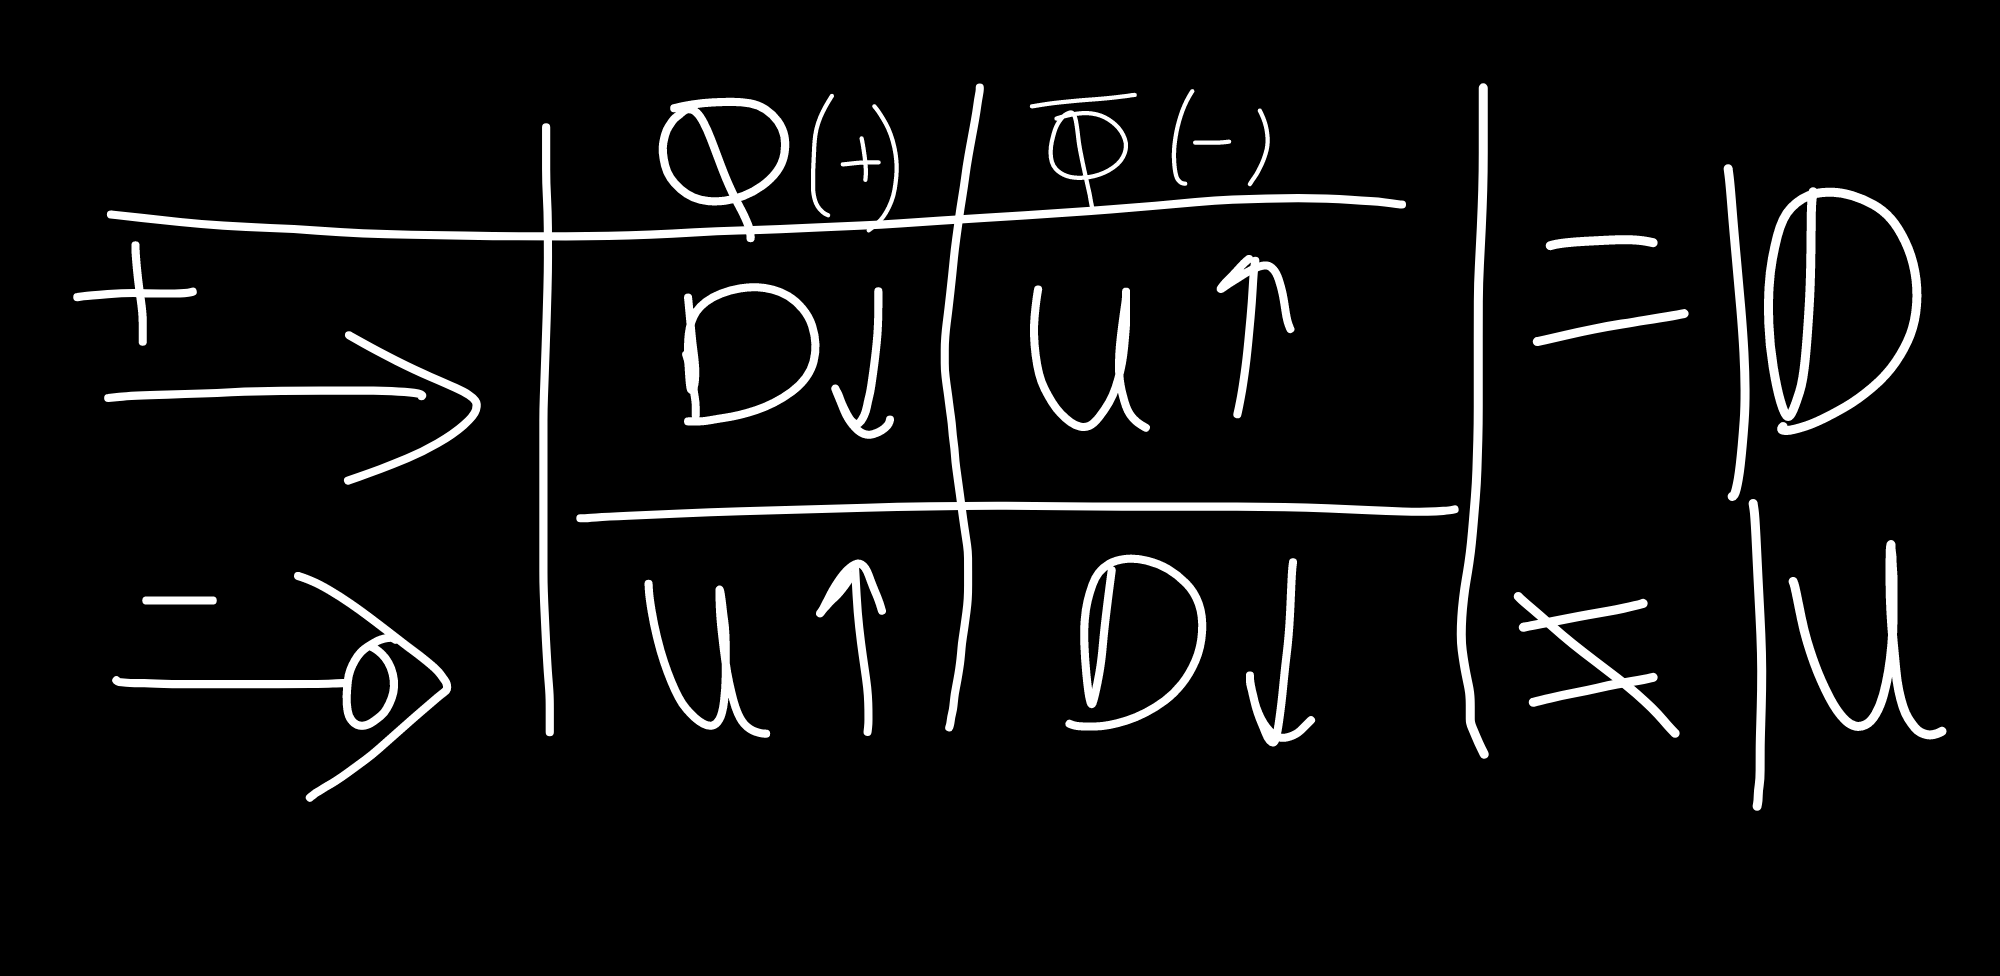 Φ (+) Φ̅ (-)
+ → D↓ U↑ = D
- —o> U↑ D↓ ≠ U